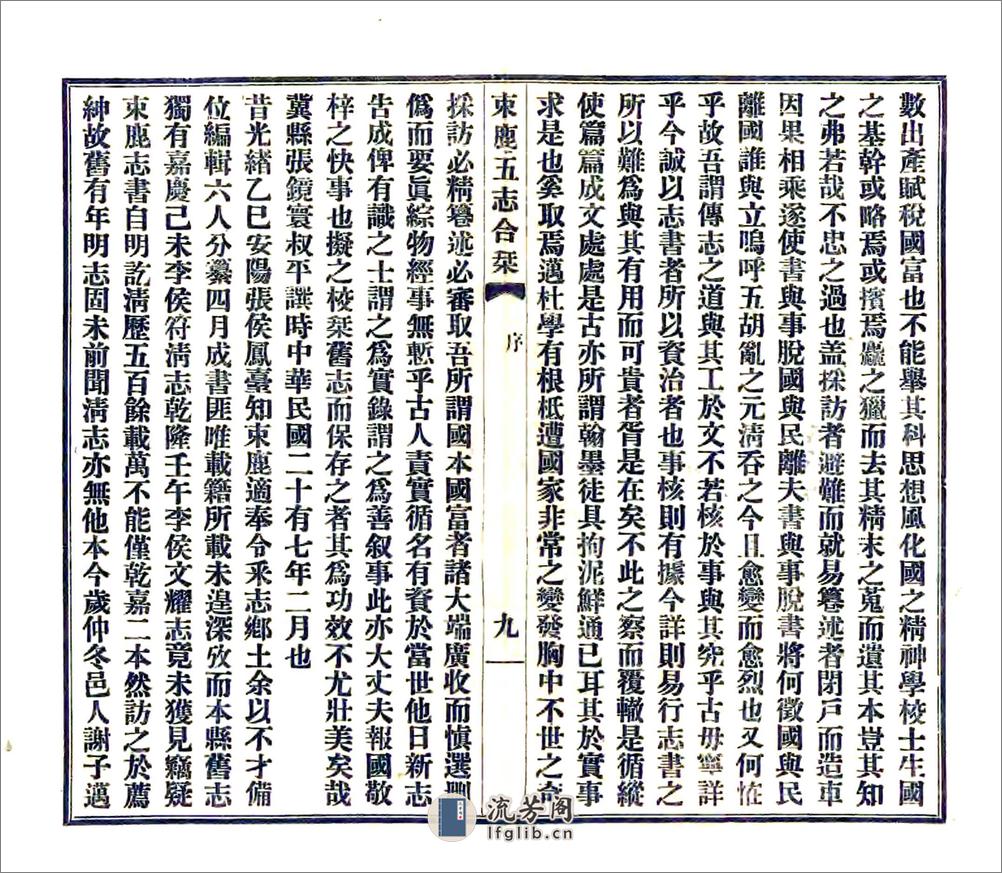 數出產賦稅國富也不能舉其科思想風化國之精神學校士生國
之基幹或略焉或擯焉麤之獵而去其精末之蒐而遺其本豈其知
之弗若哉不忠之過也盖採訪者避難而就易籑述者閉戸而造車
因果相乘遂使書與事脫國與民離夫書與事脫書將何徵國與民
離國誰與立嗚呼五胡亂之元淸呑之今且愈變而愈烈也又何恠
乎故吾謂傳志之道與其工於文不若核於事與其究乎古毋寧詳
乎今誠以志書者所以資治者也事核則有據今詳則易行志書之
所以難爲與其有用而可貴者胥是在矣不此之察而覆轍是循縱
使篇篇成文處處是古亦所謂翰墨徒具拘泥鮮通已耳其於實事
求是也奚取焉邁杜學有根柢遭國家非常之變發胸中不世之奇
束鹿五志合栞
序
九
採訪必精籑述必審取吾所謂國本國富者諸大端廣收而愼選删
僞而要眞綜物經事無慙乎古人責實循名有資於當世他日新志
告成俾有識之士謂之爲實錄謂之爲善叙事此亦大丈夫報國敬
梓之快事也擬之校栞舊志而保存之者其爲功效不尤壯美矣哉
冀縣張鏡寰叔平譔時中華民國二十有七年二月也
昔光緖乙巳安陽張侯鳳臺知束鹿適奉令釆志鄉土余以不才備
位編輯六人分纂四月成書匪唯載籍所載未遑深攷而本縣舊志
獨有嘉慶己未李侯符淸志乾隆壬午李侯文耀志竟未獲見竊疑
束鹿志書自明訖淸歷五百餘載萬不能僅乾嘉二本然訪之於薦
紳故舊有年明志固未前聞淸志亦無他本今歲仲冬邑人謝子邁
流芳阁
lfglib.cn